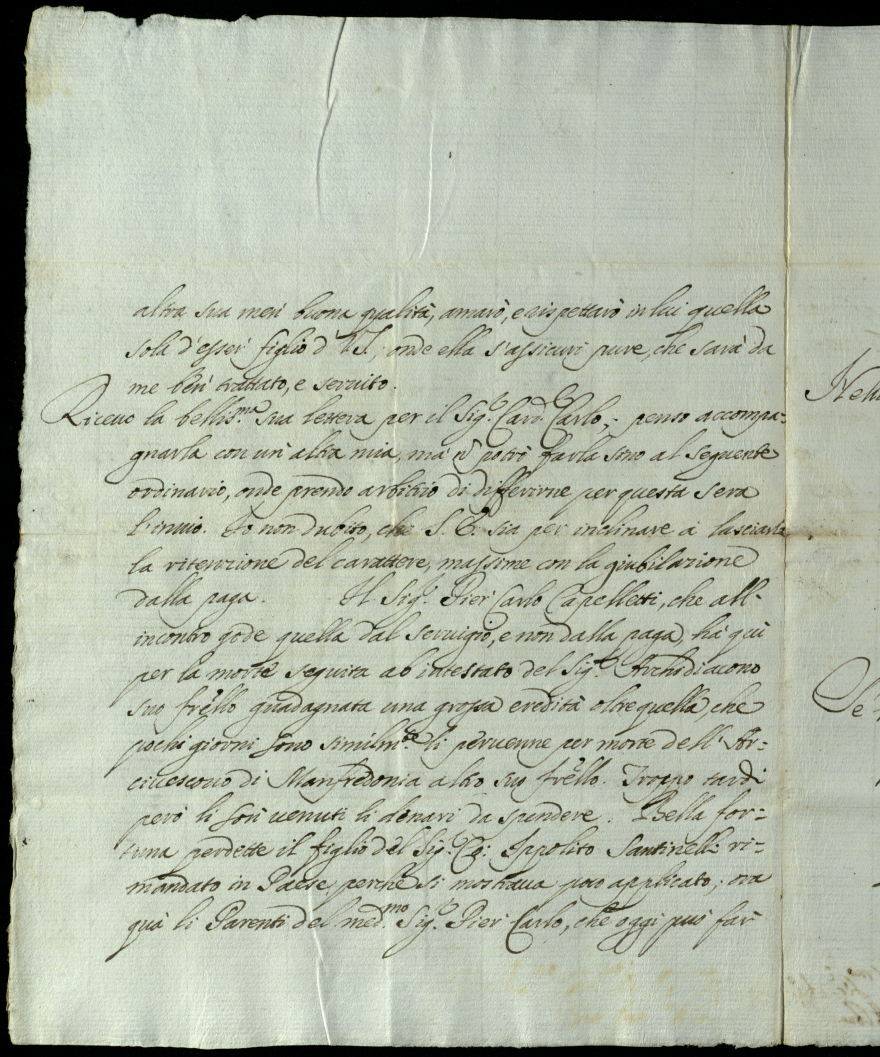 altra sua men' buona qualità, amarò, e rispettarò in lui quella
sola d'esser figlio d' V.S., onde ella s'assicuri pure, che sarà da
me ben' trattato, e seruito.
Riceuo la bellis.ma sua lettera per il Sig.r Card. Carlo, penso accompa=
gnarla con un' altra mia, mà ñ potrò farla sino al seguente
ordinario, onde prendo arbitrio di differirne per questa sera
l'inuio. Io non dubito, che S. E. sia per inclinare à lasciarle
la ritenzione del carattere, massime con la giubilazione
dalla paga. Il Sig.r Pier Carlo Capelletti, che all'
incontro gode quella dal seruigio, e non dalla paga, hà quì
per la morte seguita ab intestato del Sig.r Archidiacono
suo frello guadagnata una grossa eredità oltre quella, che
pochi giorni sono similm.te li peruenne per morte dell' Ar=
ciuescouo di Manfredonia altro suo frello. Troppo tardi
però li son' uenuti li denari da spendere. Bella for=
tuna perdette il figlio del Sig.r Ippolito Santinelli ri=
mandato in Paese, perche si mostraua poco applicato, ora
quà li Parenti del med.mo Sig.r Pier Carlo, che oggi può far
Nell
Se